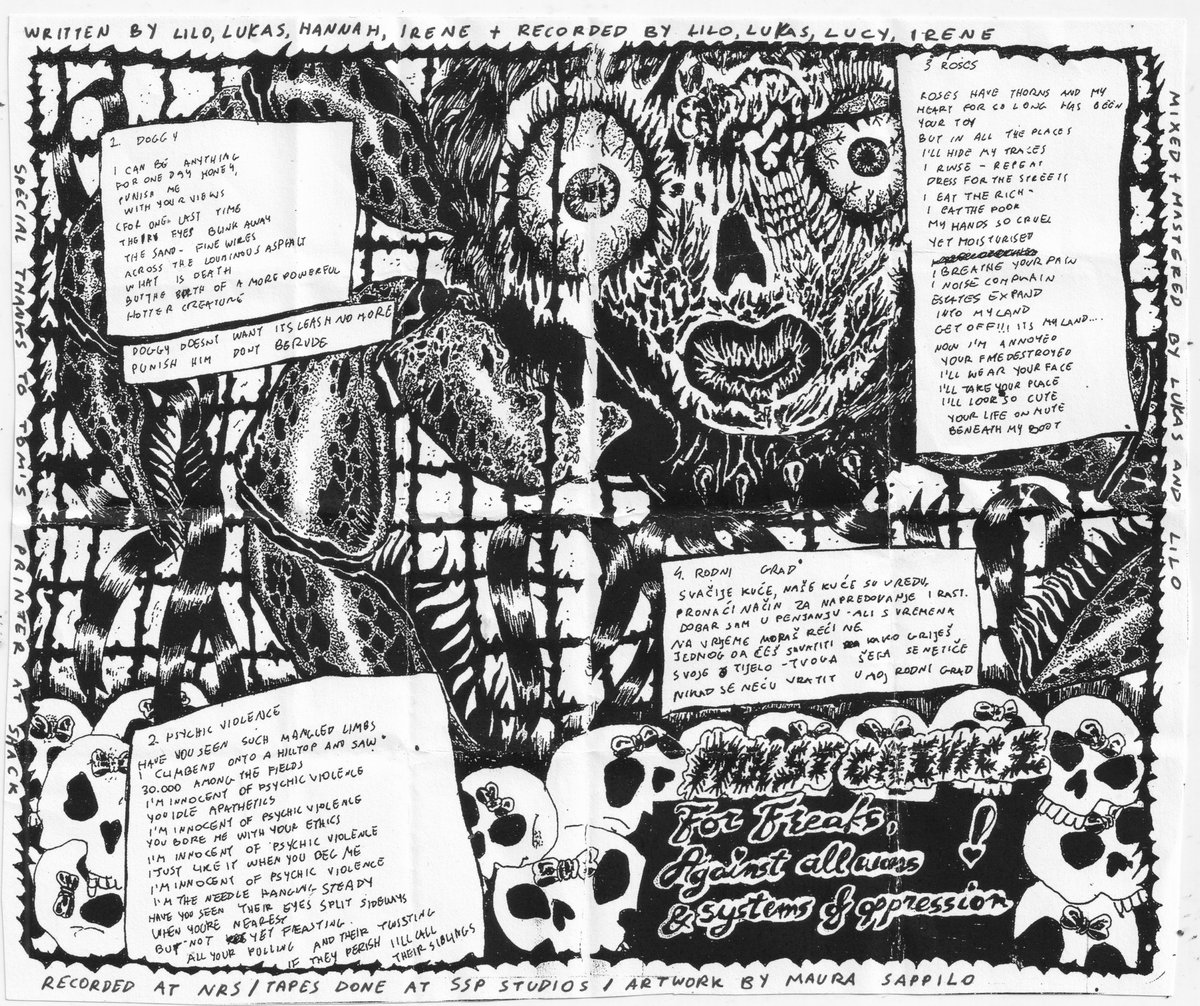 WRITTEN BY LILO, LUKAS, HANNAH, IRENE + RECORDED BY LILO, LUKAS, LUCY, IRENE
MIXED + MASTERED BY LUKAS AND LILO
SPECIAL THANKS TO TOMIS PRINTER AT SHACK
1. DOGGY
I CAN BE ANYTHING
FOR ONE DAY HONEY,
PUNISH ME
WITH YOUR VIEWS
(FOR ONE LAST TIME
THEIR EYES BLINK AWAY
THE SAND - FINE WIRES
ACROSS THE LOUMINOUS ASPHALT
WHAT IS DEATH
BUT THE BIRTH OF A MORE POWERFUL
HOTTER CREATURE
DOGGY DOESNT WANT ITS LEASH NO MORE
PUNISH HIM DONT BE RUDE
3 ROSES
ROSES HAVE THORNS AND MY
HEART FOR SO LONG HAS BEEN
YOUR TOY
BUT IN ALL THE PLACES
I'LL HIDE MY TRACES
I RINSE - REPEAT
DRESS FOR THE STREETS
I EAT THE RICH -
I EAT THE POOR
MY HANDS SO CRUEL
YET MOISTURISED
I BREATHE YOUR PAIN
I NOISE COMPLAIN
ESTATES EXPAND
INTO MY LAND
GET OFF!!! ITS MY LAND....
NOW I'M ANNOYED
YOUR FACE DESTROYED
I'LL WEAR YOUR FACE
I'LL TAKE YOUR PLACE
I'LL LOOK SO CUTE
YOUR LIFE ON MUTE
BENEATH MY BOOT
4. RODNI GRAD
SVAČIJE KUĆE, NAŠE KUĆE SU UREDU,
PRONAĆI NAČIN ZA NAPREDOVANJE I RAST.
DOBAR SAM U PENJANJU - ALI S VREMENA
NA VRIJEME MORAŠ REĆI NE.
JEDNOG DA ĆEŠ SHVATITI KAKO GRIJEŠ
SVOJE TIJELO - TVOGA ŠEFA SE NETIČE
NIKAD SE NEĆU VRATIT U MOJ RODNI GRAD
2 PSYCHIC VIOLENCE
HAVE YOU SEEN SUCH MANGLED LIMBS
I CLIMBEND ONTO A HILLTOP AND SAW
30.000 AMONG THE FIELDS
I'M INNOCENT OF PSYCHIC VIOLENCE
YOU IDLE APATHETICS
I'M INNOCENT OF PSYCHIC VIOLENCE
YOU BORE ME WITH YOUR ETHICS
I'M INNOCENT OF PSYCHIC VIOLENCE
I JUST LIKE IT WHEN YOU BEG ME
I'M INNOCENT OF PSYCHIC VIOLENCE
I'M THE NEEDLE HANGING STEADY
HAVE YOU SEEN THEIR EYES SPLIT SIDEWAYS
WHEN YOURE NEAREST
BUT NOT YET FEASTING.
ALL YOUR PULLING AND THEIR TWISTING
IF THEY PERISH I ILL CALL
THEIR SIBLINGS
MOIST CREVICE
For Freaks,
Against all wars
& systems of oppression
!
RECORDED AT NRS / TAPES DONE AT SSP STUDIOS / ARTWORK BY MAURA SAPPILO